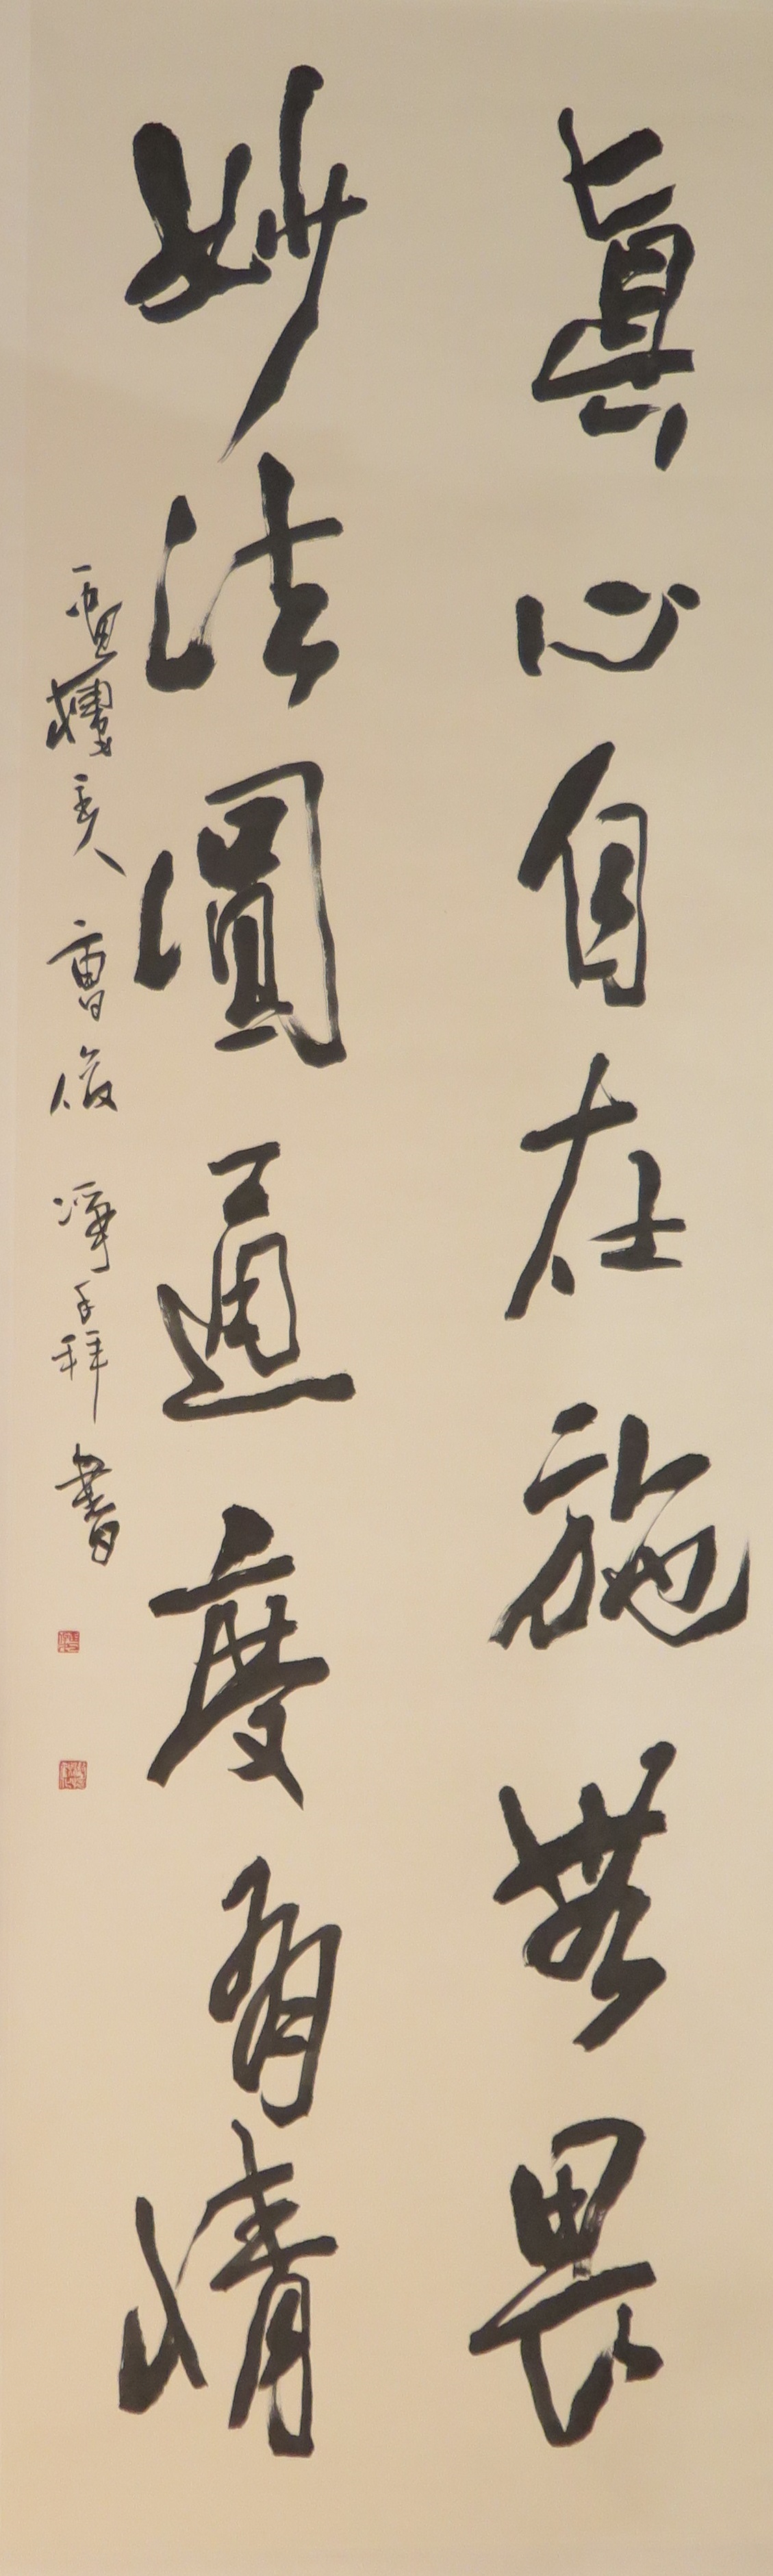 眞心自在施無畏
妙法圓通度有情
壹樓主人 曹俊 淨手拜書